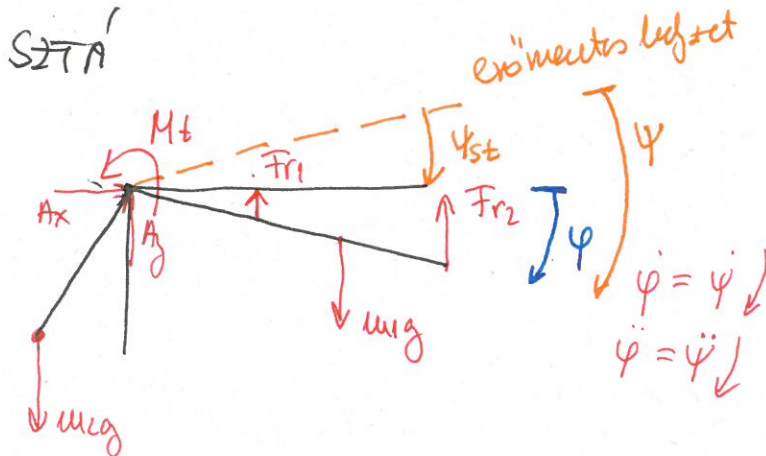 SZTA'
erőmentes helyzet
Mt
Fr1
ψst
ψ
Ax
Ay
Fr2
φ
m1g
φ̇ = ψ̇
φ̈ = ψ̈
m2g